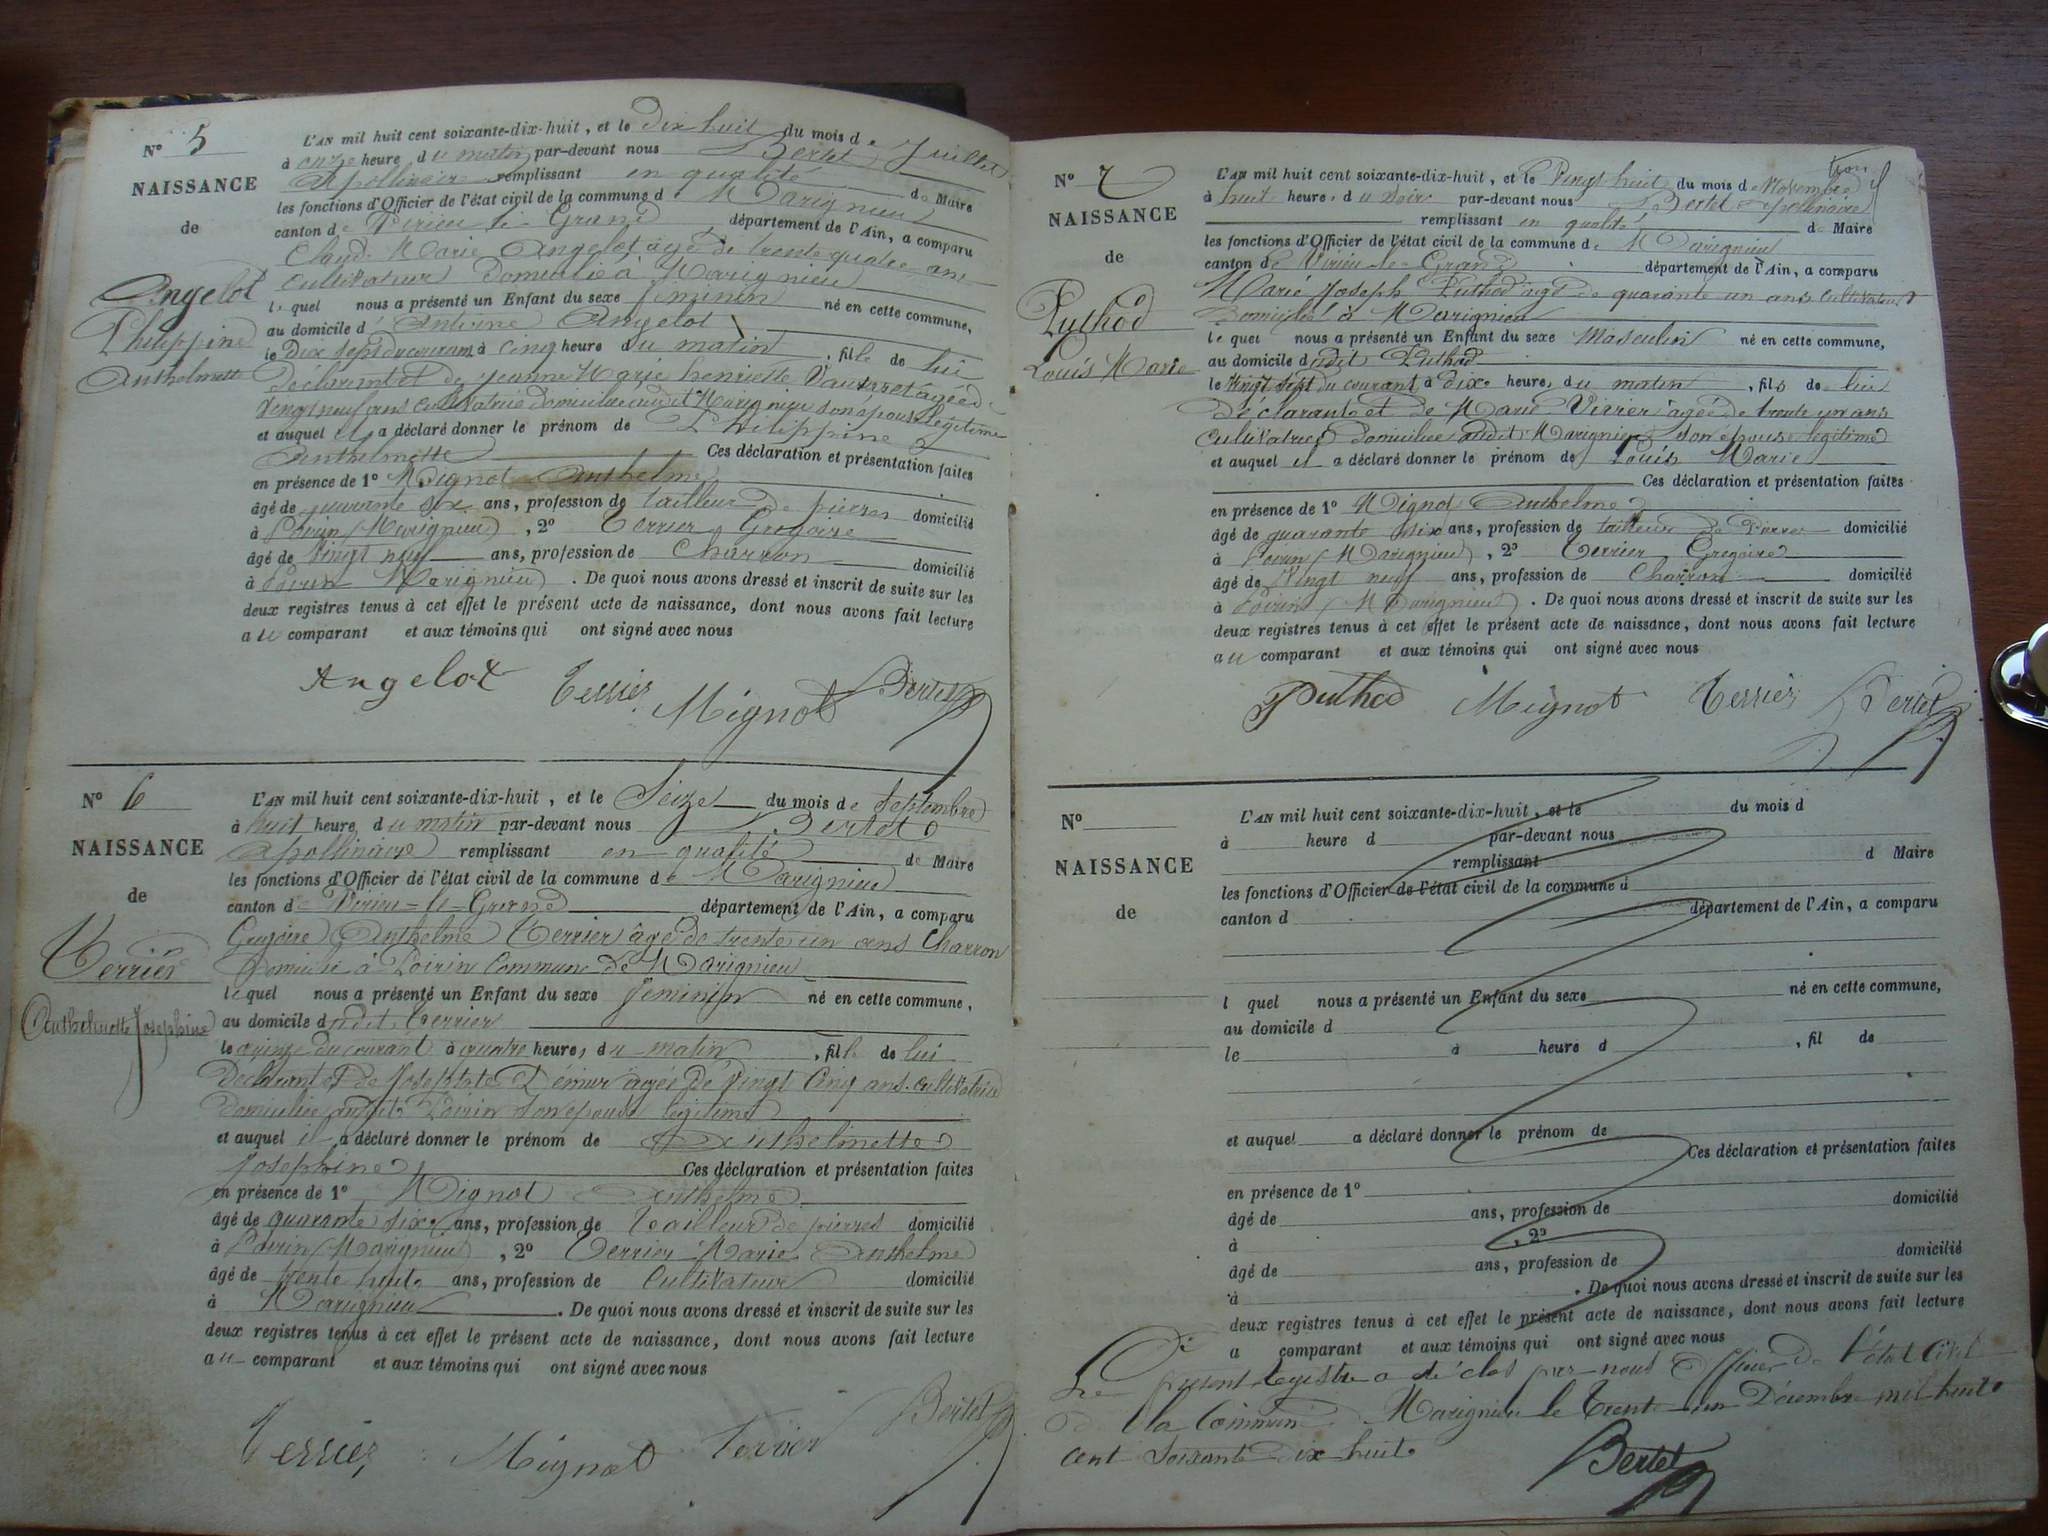 N° 5
NAISSANCE
de
Angelot
Philippine
Anthelmette
L'AN mil huit cent soixante-dix-huit, et le Dix huit du mois de Juillet
à onze heure du matin par-devant nous Bertet
Apollinaire remplissant en qualité de Maire
les fonctions d'Officier de l'état civil de la commune de Marignieu
canton de Virieu-le-Grand département de l'Ain, a comparu
Claude Marie Angelot âgé de trente quatre ans
cultivateur domicilié à Marignieu
lequel nous a présenté un Enfant du sexe féminin né en cette commune,
au domicile d' Antoine Angelot
le Dix sept du courant à cinq heure du matin, fille de lui
déclarant et de Jeanne Marie henriette âgée de
Vingt neuf ans cultivatrice domiciliée audit Marignieu son épouse légitime
et auquel il a déclaré donner le prénom de Philippine
Anthelmette Ces déclaration et présentation faites
en présence de 1° Mignot Anthelme
âgé de quarante six ans, profession de tailleur de pierres domicilié
à Poirin (Marignieu), 2° Terrier Grégoire
âgé de Vingt neuf ans, profession de Charron domicilié
à Poirin Marignieu. De quoi nous avons dressé et inscrit de suite sur les
deux registres tenus à cet effet le présent acte de naissance, dont nous avons fait lecture
au comparant et aux témoins qui ont signé avec nous
Angelot Terrier Mignot Bertet
N° 6
NAISSANCE
de
Terrier
Anthelmette Josephine
L'AN mil huit cent soixante-dix-huit, et le Seize du mois de Septembre
à huit heure du matin par-devant nous Bertet
Apollinaire remplissant en qualité de Maire
les fonctions d'Officier de l'état civil de la commune de Marignieu
canton de Virieu-le-Grand département de l'Ain, a comparu
Grégoire Anthelme Terrier âgé de trente un ans Charron
domicilié à Poirin Commune de Marignieu
lequel nous a présenté un Enfant du sexe féminin né en cette commune,
au domicile dudit Terrier
le quinze du courant à quatre heures du matin, fille de lui
Déclarant et de Josephte âgée de Vingt Cinq ans cultivatrice
domiciliée audit Poirin son épouse légitime
et auquel il a déclaré donner le prénom de Anthelmette
Josephine Ces déclaration et présentation faites
en présence de 1° Mignot Anthelme
âgé de quarante six ans, profession de Tailleur de pierres domicilié
à Poirin (Marignieu), 2° Terrier Marie Anthelme
âgé de trente huit ans, profession de Cultivateur domicilié
à Marignieu. De quoi nous avons dressé et inscrit de suite sur les
deux registres tenus à cet effet le présent acte de naissance, dont nous avons fait lecture
au comparant et aux témoins qui ont signé avec nous
Terrier Mignot Terrier Bertet
N° 7
NAISSANCE
de
Puthod
Louis Marie
L'AN mil huit cent soixante-dix-huit, et le Vingt huit du mois de Novembre
à huit heures du soir par-devant nous Bertet Apollinaire
remplissant en qualité de Maire
les fonctions d'Officier de l'état civil de la commune de Marignieu
canton de Virieu-le-Grand département de l'Ain, a comparu
Marie Joseph Puthod âgé de quarante un ans cultivateur
domicilié à Marignieu
lequel nous a présenté un Enfant du sexe Masculin né en cette commune,
au domicile dudit Puthod
le Vingt sept du courant à dix heures du matin, fils de lui
déclarant et de Marie Vivier âgée de trente un ans
Cultivatrice domiciliée audit Marignieu son épouse légitime
et auquel il a déclaré donner le prénom de Louis Marie
Ces déclaration et présentation faites
en présence de 1° Mignot Anthelme
âgé de quarante six ans, profession de tailleur de Pierres domicilié
à Poirin (Marignieu), 2° Terrier Grégoire
âgé de Vingt neuf ans, profession de Charron domicilié
à Poirin (Marignieu). De quoi nous avons dressé et inscrit de suite sur les
deux registres tenus à cet effet le présent acte de naissance, dont nous avons fait lecture
au comparant et aux témoins qui ont signé avec nous
Puthod Mignot Terrier Bertet
N°
NAISSANCE
de
L'AN mil huit cent soixante-dix-huit, et le du mois d
à heure d par-devant nous
remplissant d Maire
les fonctions d'Officier de l'état civil de la commune d
canton d département de l'Ain, a comparu
l quel nous a présenté un Enfant du sexe né en cette commune,
au domicile d
le à heure d , fil de
et auquel a déclaré donner le prénom de
Ces déclaration et présentation faites
en présence de 1°
âgé de ans, profession de domicilié
à , 2°
âgé de ans, profession de domicilié
à . De quoi nous avons dressé et inscrit de suite sur les
deux registres tenus à cet effet le présent acte de naissance, dont nous avons fait lecture
a comparant et aux témoins qui ont signé avec nous
Le présent Registre a été clos par nous Officier de l'état Civil
de la Commune Marignieu le Trente un Décembre mil huit
cent Soixante dix huit
Bertet